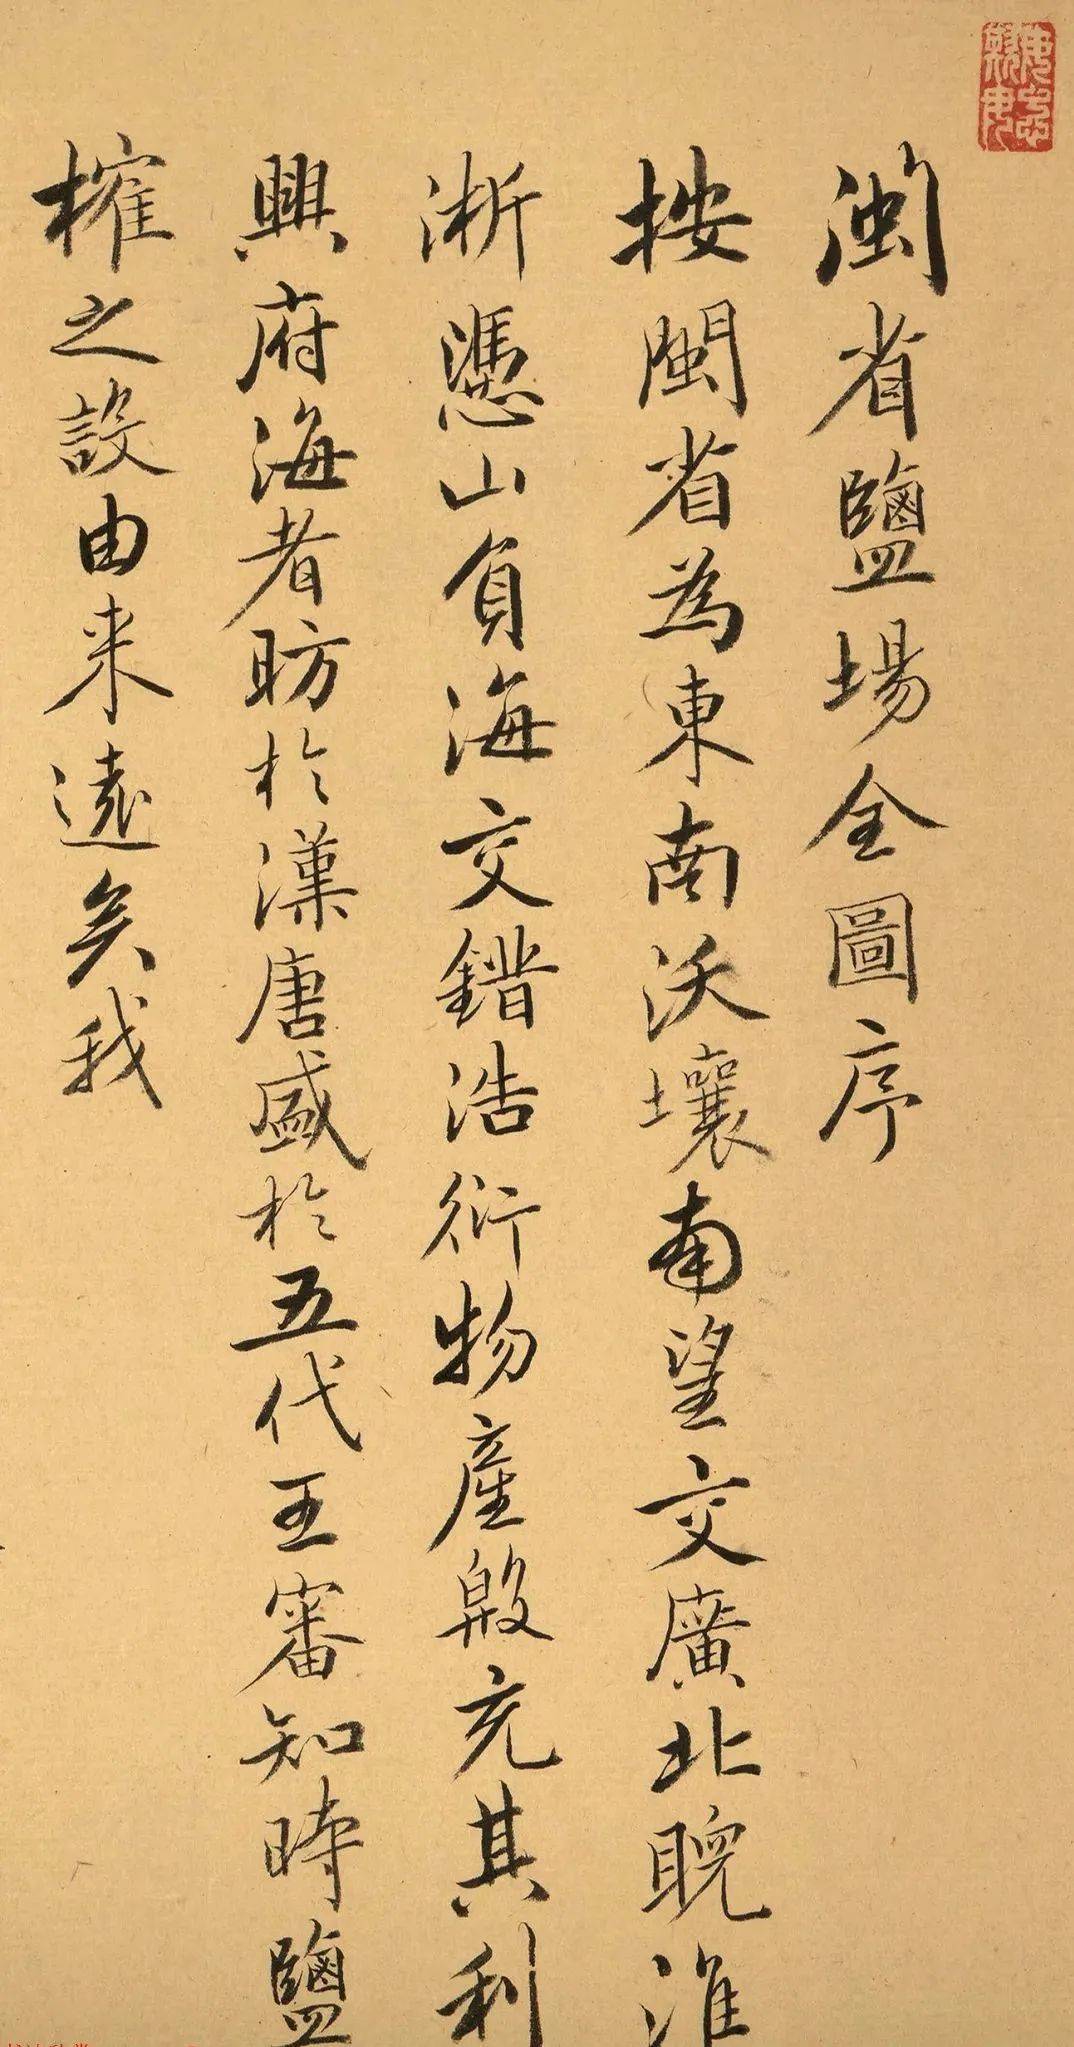 閩省鹽場全圖序
按閩省為東南沃壤南望交廣北睨淮
浙憑山負海交錯浩衍物產殷充其利
興府海者昉於漢唐盛於五代王審知時鹽
榷之設由来遠矣我